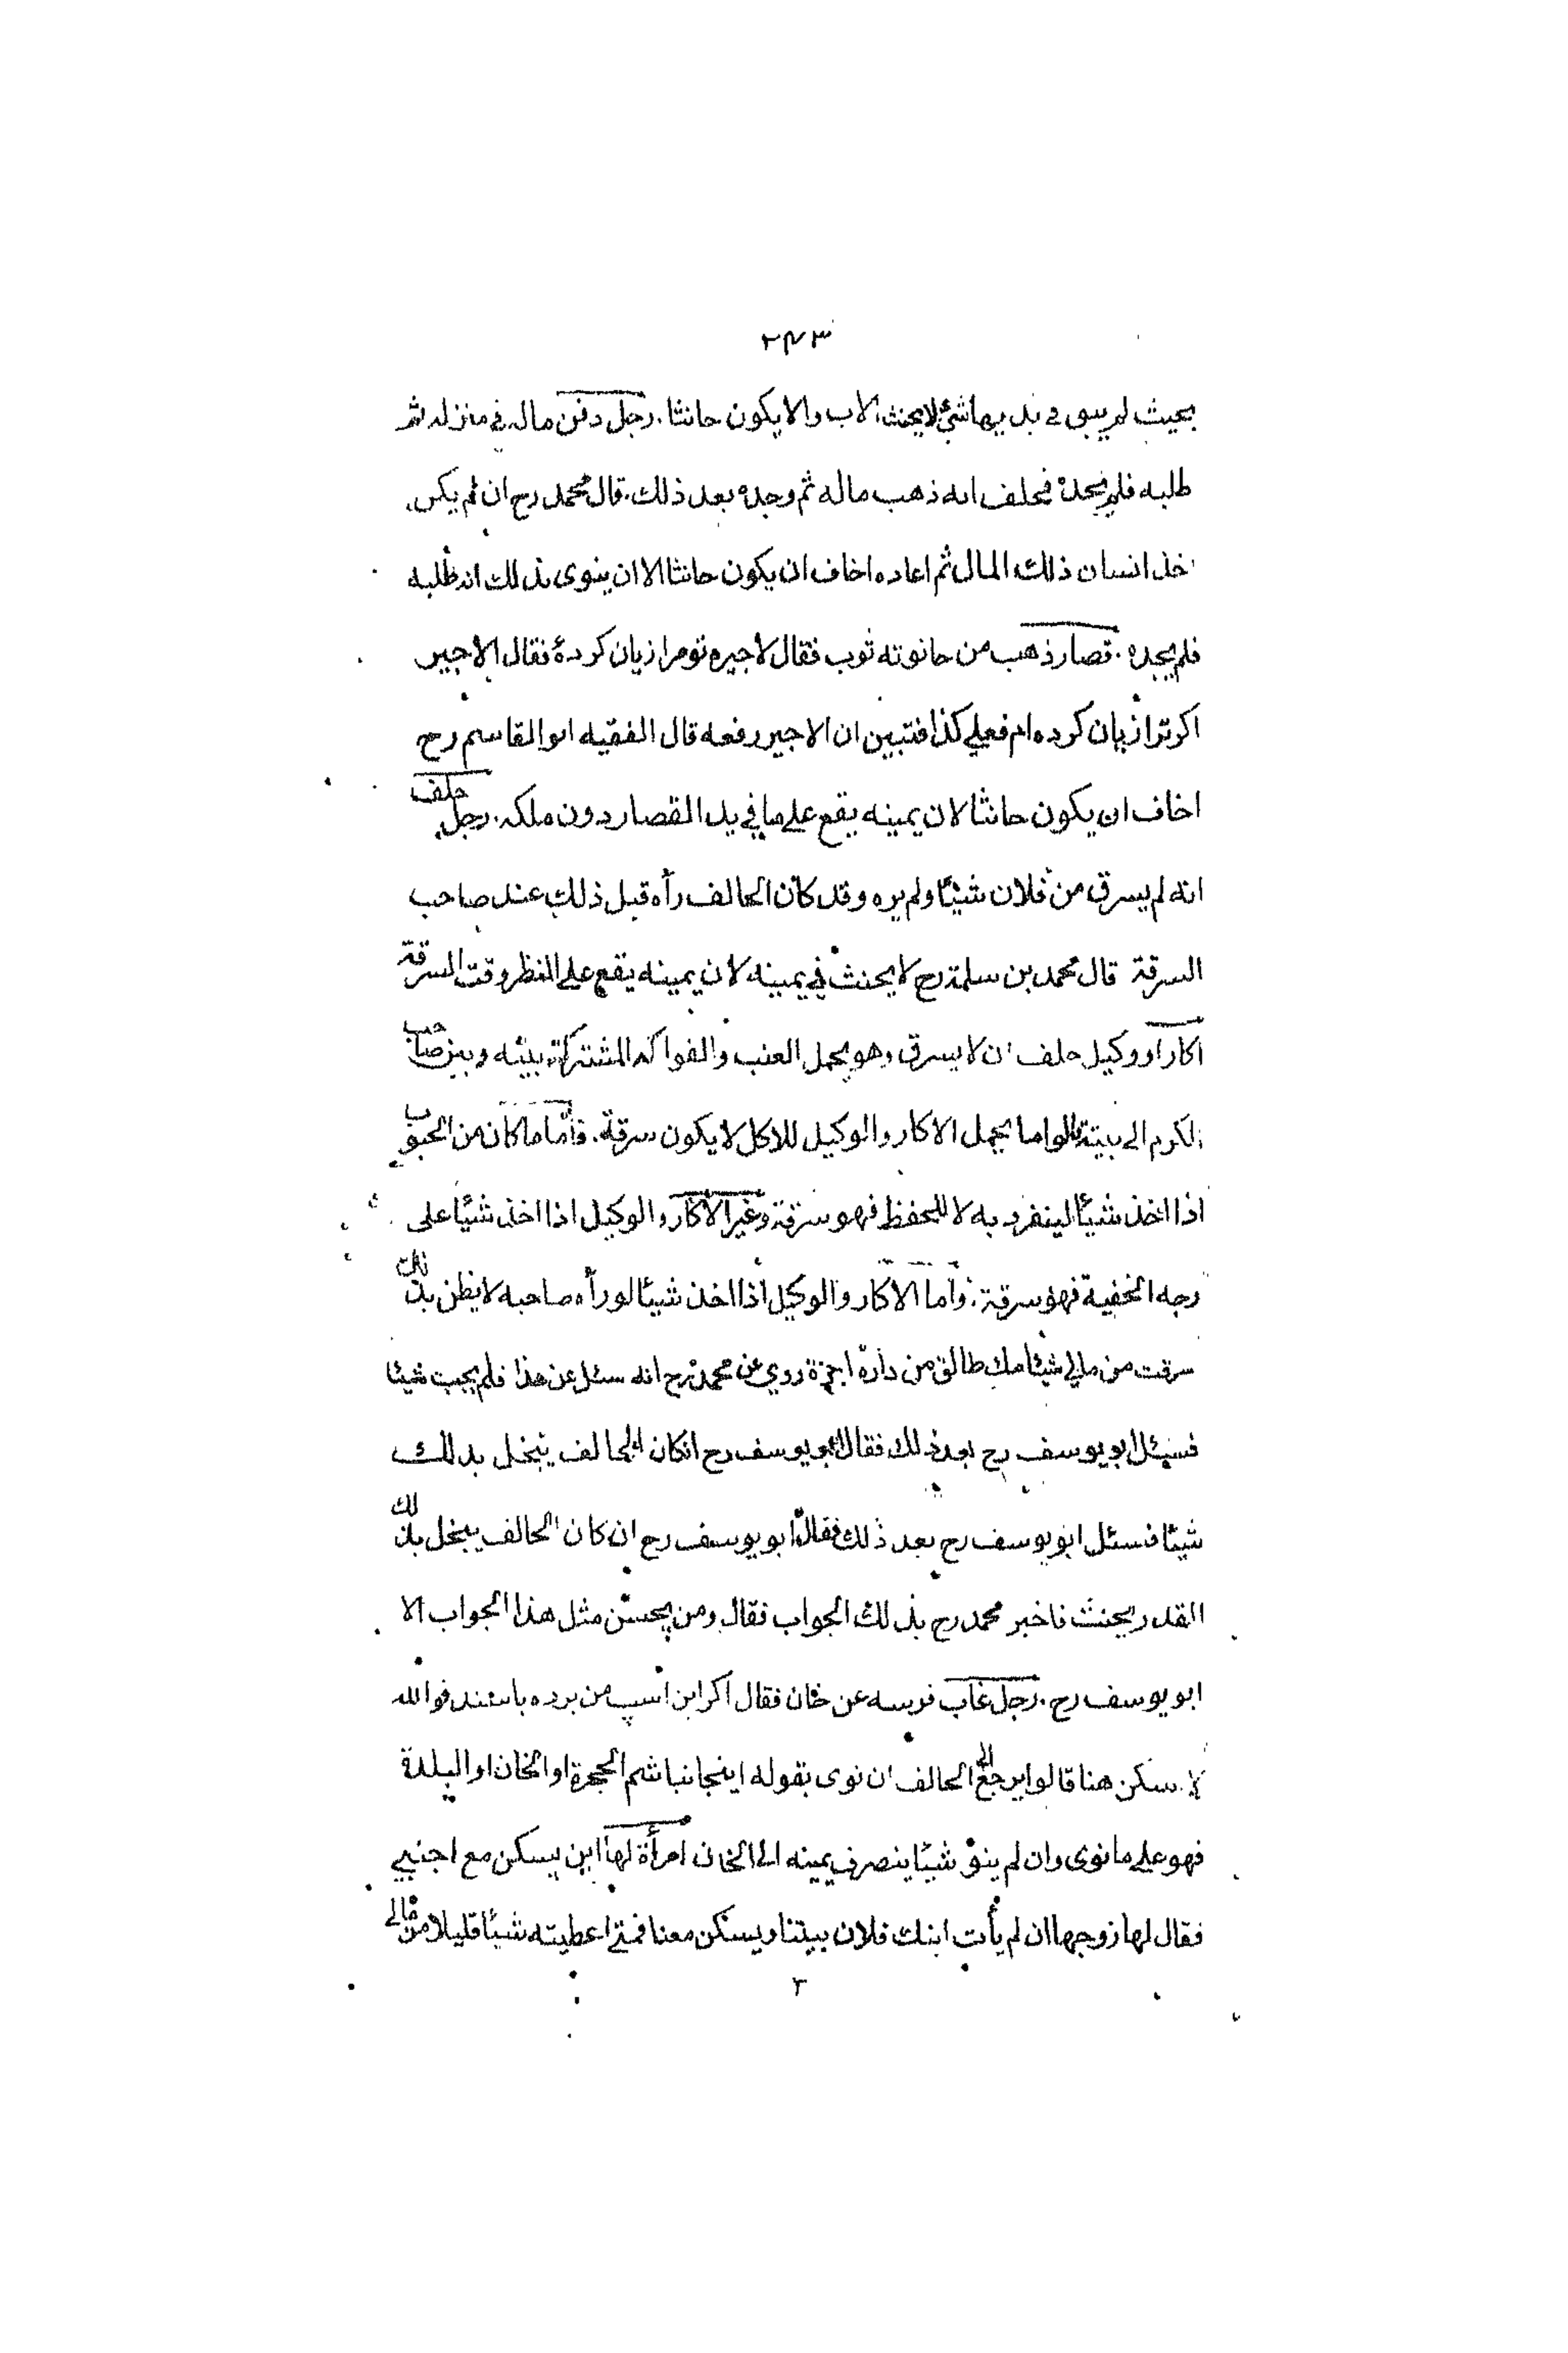 ٢٤٣
بحيث لم يبق في يديها شئ لا يحنث الاب والا يكون حانثا. رجل دفن ماله في منزله ثم
طلبه فلم يجده فحلف انه ذهب ماله ثم وجده بعد ذلك. قال محمد رح ان لم يكن
اخذ انسان ذلك المال ثم اعاده اخاف ان يكون حانثا الا ان ينوى بذلك انه طلبه
فلم يجده. قصار ذهب من حانوته ثوب فقال لاجيره تو مرا زيان كردۀ فقال الاجير
اكر ترا زيان كرده ام فعلي كذا فتبين ان الاجير رفعه قال الفقيه ابو القاسم رح
اخاف ان يكون حانثا لان يمينه يقع على ما في يد القصار دون ملكه. رجل حلف
انه لم يسرق من فلان شيئا ولم يره وقد كان الحالف رأه قبل ذلك عند صاحب
السرقة قال محمد بن سلمة رح لا يحنث في يمينه لان يمينه يقع على النظر وقت السرقة
اكار او وكيل حلف ان لا يسرق وهو يحمل العنب والفواكه المشتركة بينه وبين صاحب
الكرم الى بيته قالوا ما يحمل الاكار والوكيل للاكل لا يكون سرقة. فأما ما كان من الحبوب
اذا اخذ شيئا لينفرد به لا للحفظ فهو سرقة وغير الاكار والوكيل اذا اخذ شيئا على
وجه الخفية فهو سرقة. وأما الاكار والوكيل اذا اخذ شيئا لو رأه صاحبه لا يظن بذلك
سرقت من مالي شيئا طالق من داره روي عن محمد رح انه سئل عن هذا فلم يجب شيئا
فسئل ابو يوسف رح بعد ذلك فقال ابو يوسف رح انكان الحالف يبخل بذلك
شيئا فسئل ابو يوسف رح بعد ذلك فقال ابو يوسف رح ان كان الحالف يبخل بذلك
القدر يحنث فاخبر محمد رح بذلك الجواب فقال ومن يحسن مثل هذا الجواب الا
ابو يوسف رح. رجل غاب فرسه عن خان فقال اكر اين اسپ من برده باشند فوالله
لا سكن هنا قالوا يرجع الى الحالف ان نوى بقوله اينجا نباشم الحجرة او الخان او البلدة
فهو على ما نوى وان لم ينو شيئا ينصرف يمينه الى الخان امرأة لها ابن يسكن مع اجنبي
فقال لها زوجها ان لم يأت ابنك فلان بيتنا ويسكن معنا فمتى اعطيته شيئا قليلا من مالي
٣